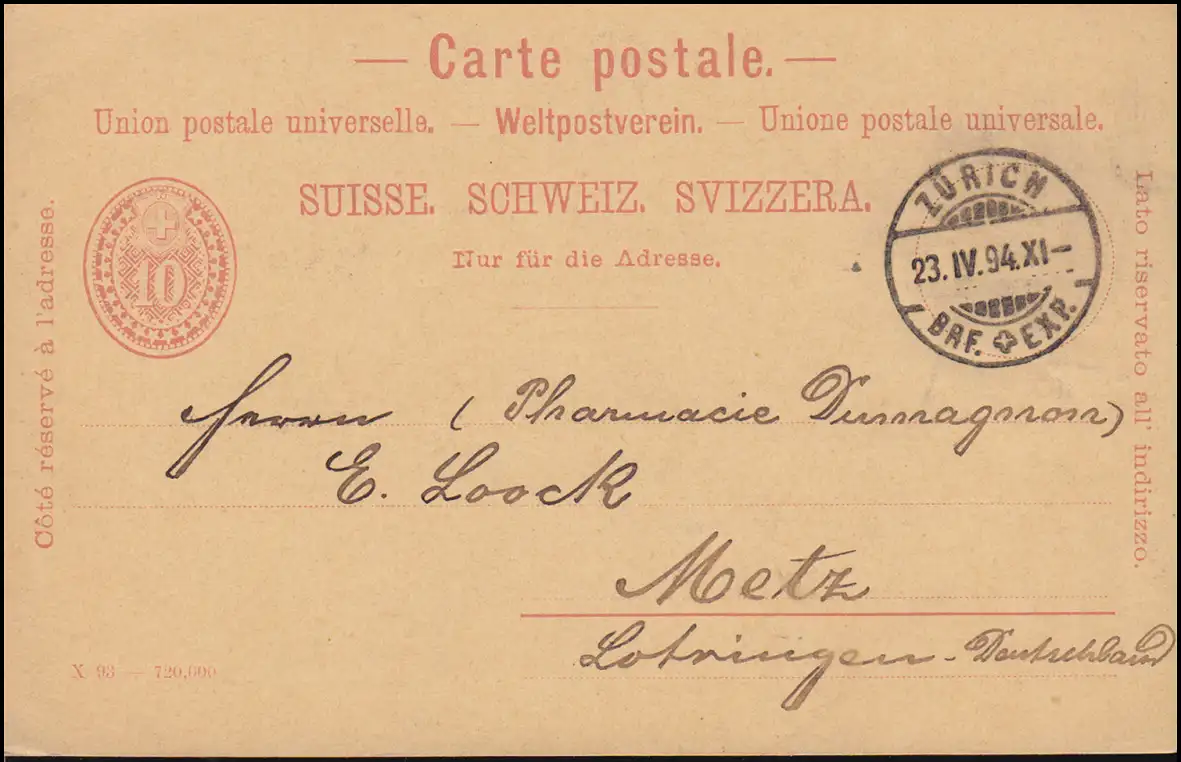 — Carte postale. —
Union postale universelle. — Weltpostverein. — Unione postale universale.
SUISSE. SCHWEIZ. SVIZZERA.
Nur für die Adresse.
10
Côté réservé à l'adresse.
Lato riservato all' indirizzo.
ZÜRICH
23.IV.94.XI–
BRF. EXP.
Herrn (Pharmacie Dumagnon)
E. Loock
Metz
Lotringen - Deutschland
X 93 — 720,000